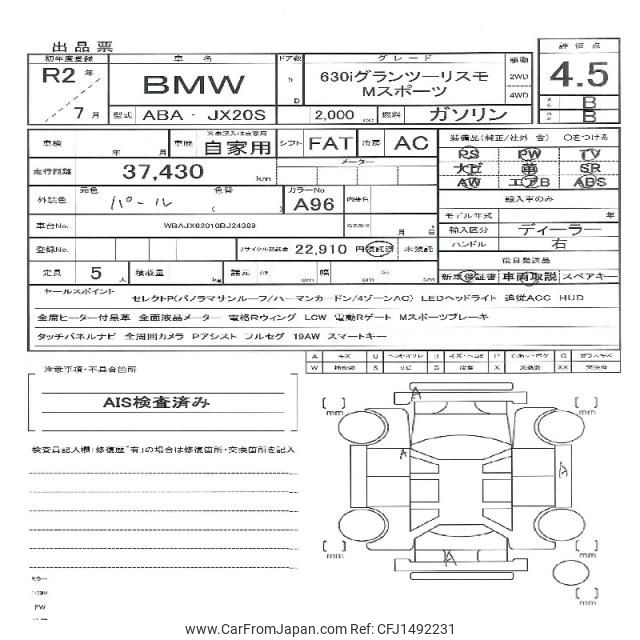 出品票
初年度登録 車名 ドア数 グレード 駆動 評価点
R2年 BMW 5 630iグランツーリスモ 2WD 4.5
7月 D Mスポーツ 4WD
型式 ABA - JX20S 2,000 cc 燃料 ガソリン B
B
車検 年 月 車歴 自家用 シフト FAT 冷房 AC 装備品(純正/社外 含) 〇をつける
走行距離 37,430 km メーター PS PW TV
大ビ 革 SR
AW エアB ABS
外装色 元色 パール 色替 カラーNo A96 内装色 輸入車のみ
モデル年式 年
車台No. WBAJX62010BJ24389 月 日 輸入区分 ディーラー
登録No. リサイクル預託金 22,910 円 預託済 未預託 ハンドル 右
後日発送品
定員 5人 積載量 kg 諸元 cm 幅 cm cm 新車保証書 車両取説 スペアキー
セールスポイント セレクトP(パノラマリンルーフ/ハーマンカードン/4ゾーンAC) LEDヘッドライト 追従ACC HUD
全席ヒーター付黒革 全面液晶メーター 電格Rウィング LCW 電動Rゲート Mスポーツブレーキ
タッチパネルナビ 全周囲カメラ Pアシスト フルセグ 19AW スマートキー
注意事項・不具合箇所
AIS検査済み
検査員記入欄:修復歴「有」の場合は修復箇所・交換箇所を記入
A キズ U B P G ガラスキズ
W S サビ X 交換要 XX 交換済
A
A
A
A
mm
mm
mm
mm
mm
ミラー
PW
www.CarFromJapan.com Ref: CFJ1492231